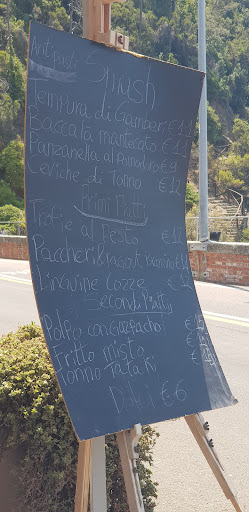 Splash
Antipasti
Tempura di Gamberi €11
Baccalà mantecato €11
Panzanella al Pomodoro €9
Ceviche di Tonno €12
Primi Piatti
Trofie al Pesto
Paccheri
Linguine Cozze
Secondi Piatti
Polpo con Gazpacho
Fritto misto
Tonno Tataki
Dolci €6